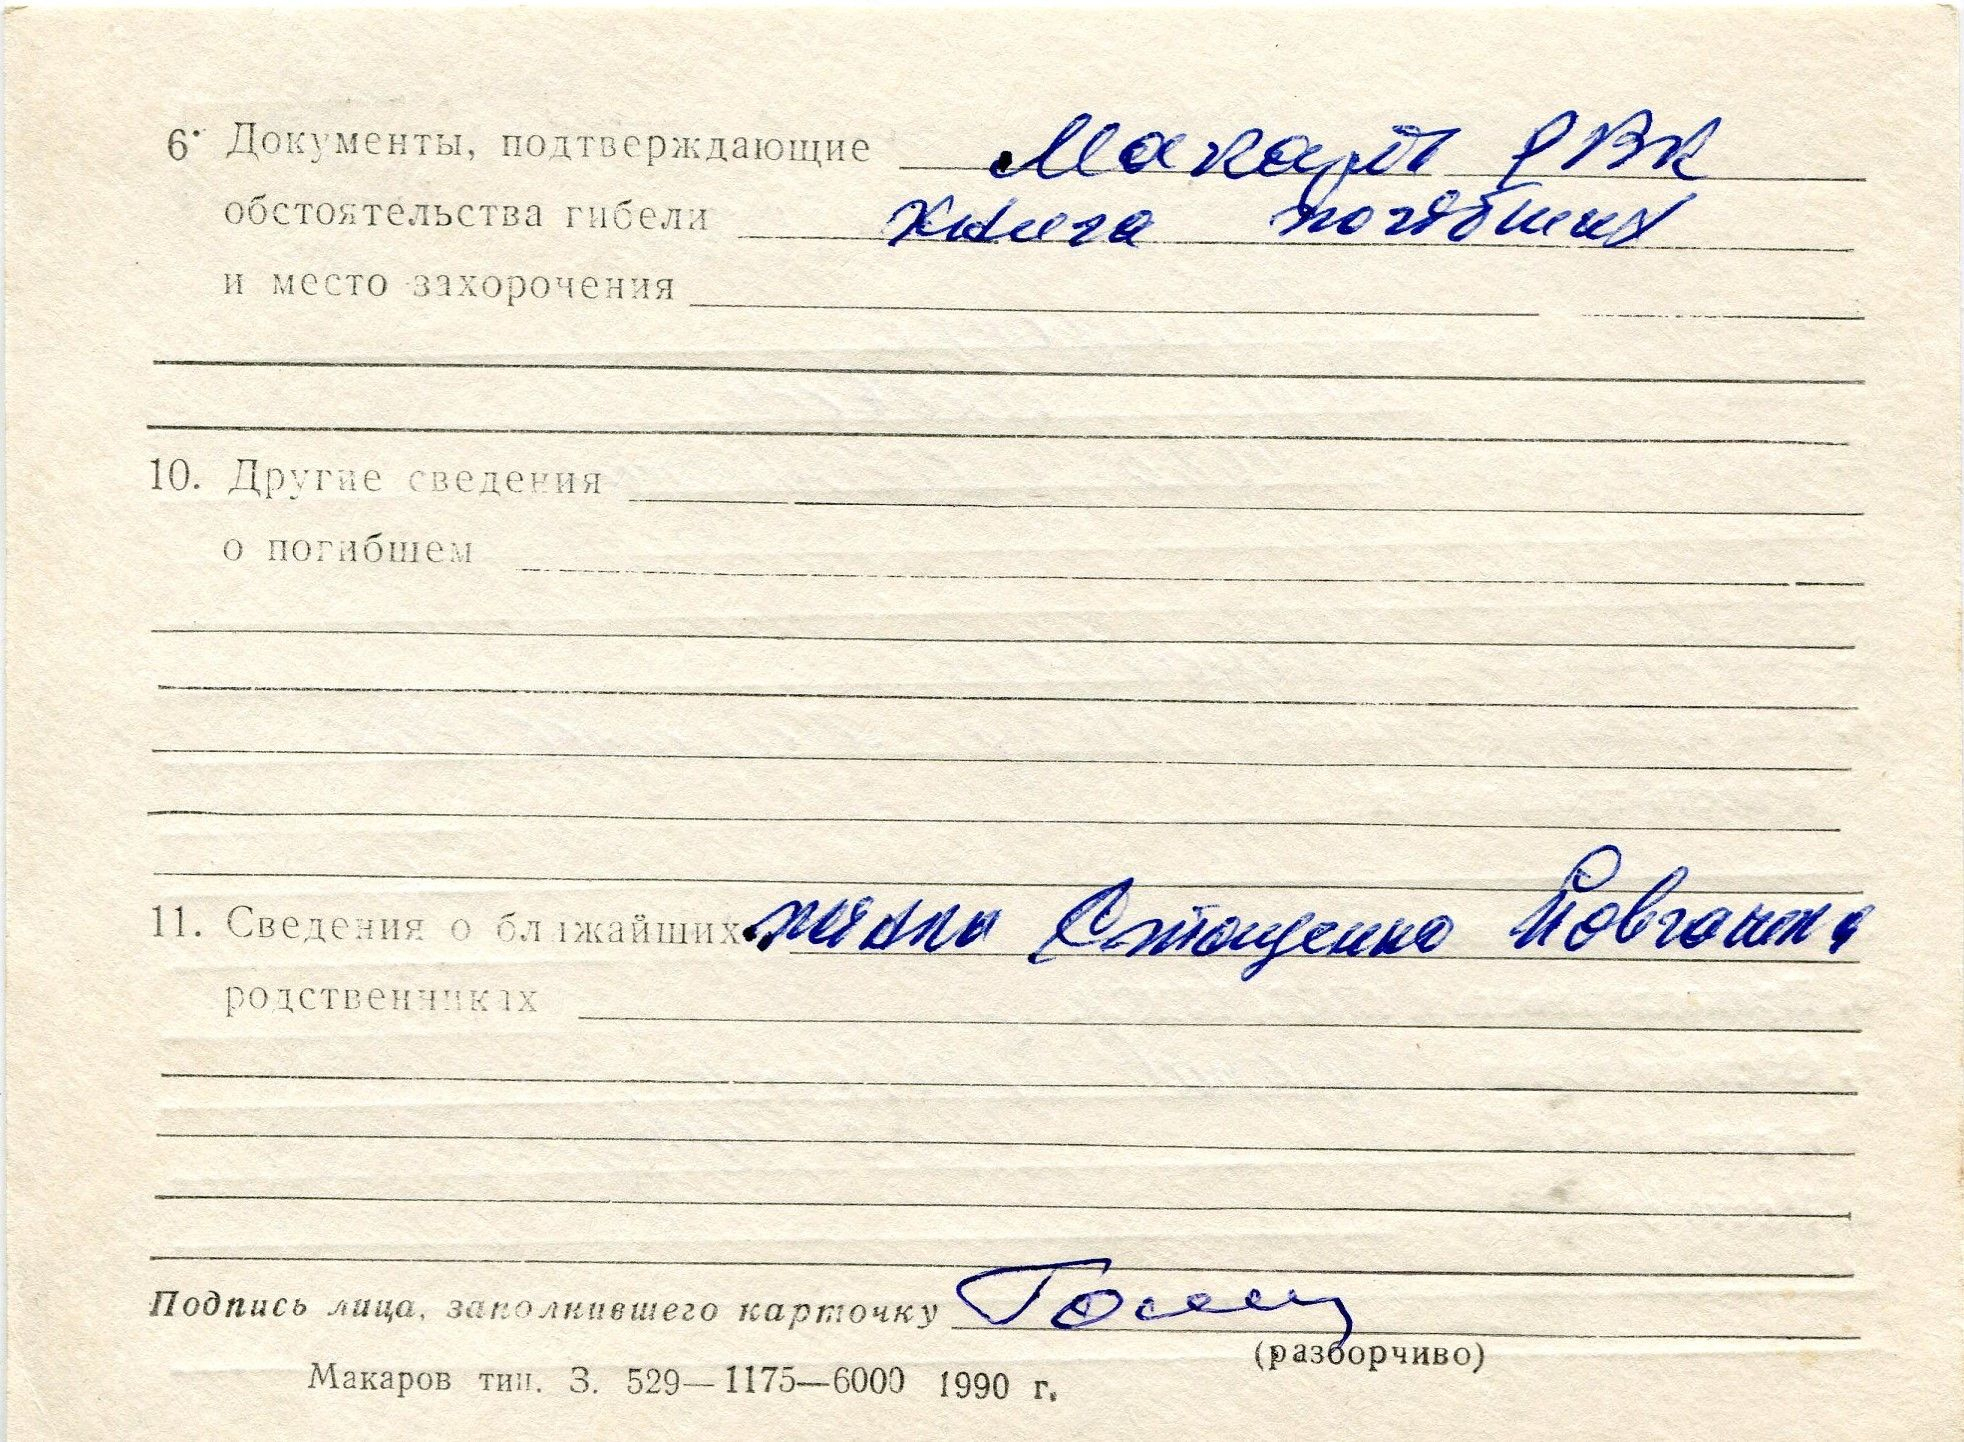 6. Документы, подтверждающие Макар РВК
обстоятельства гибели книга погибших
и место захорочения
10. Другие сведения
о погибшем
11. Сведения о ближайших жінка Стащенко
родственниках
Подпись лица, заполнившего карточку
(разборчиво)
Макаров тип. З. 529—1175—6000 1990 г.